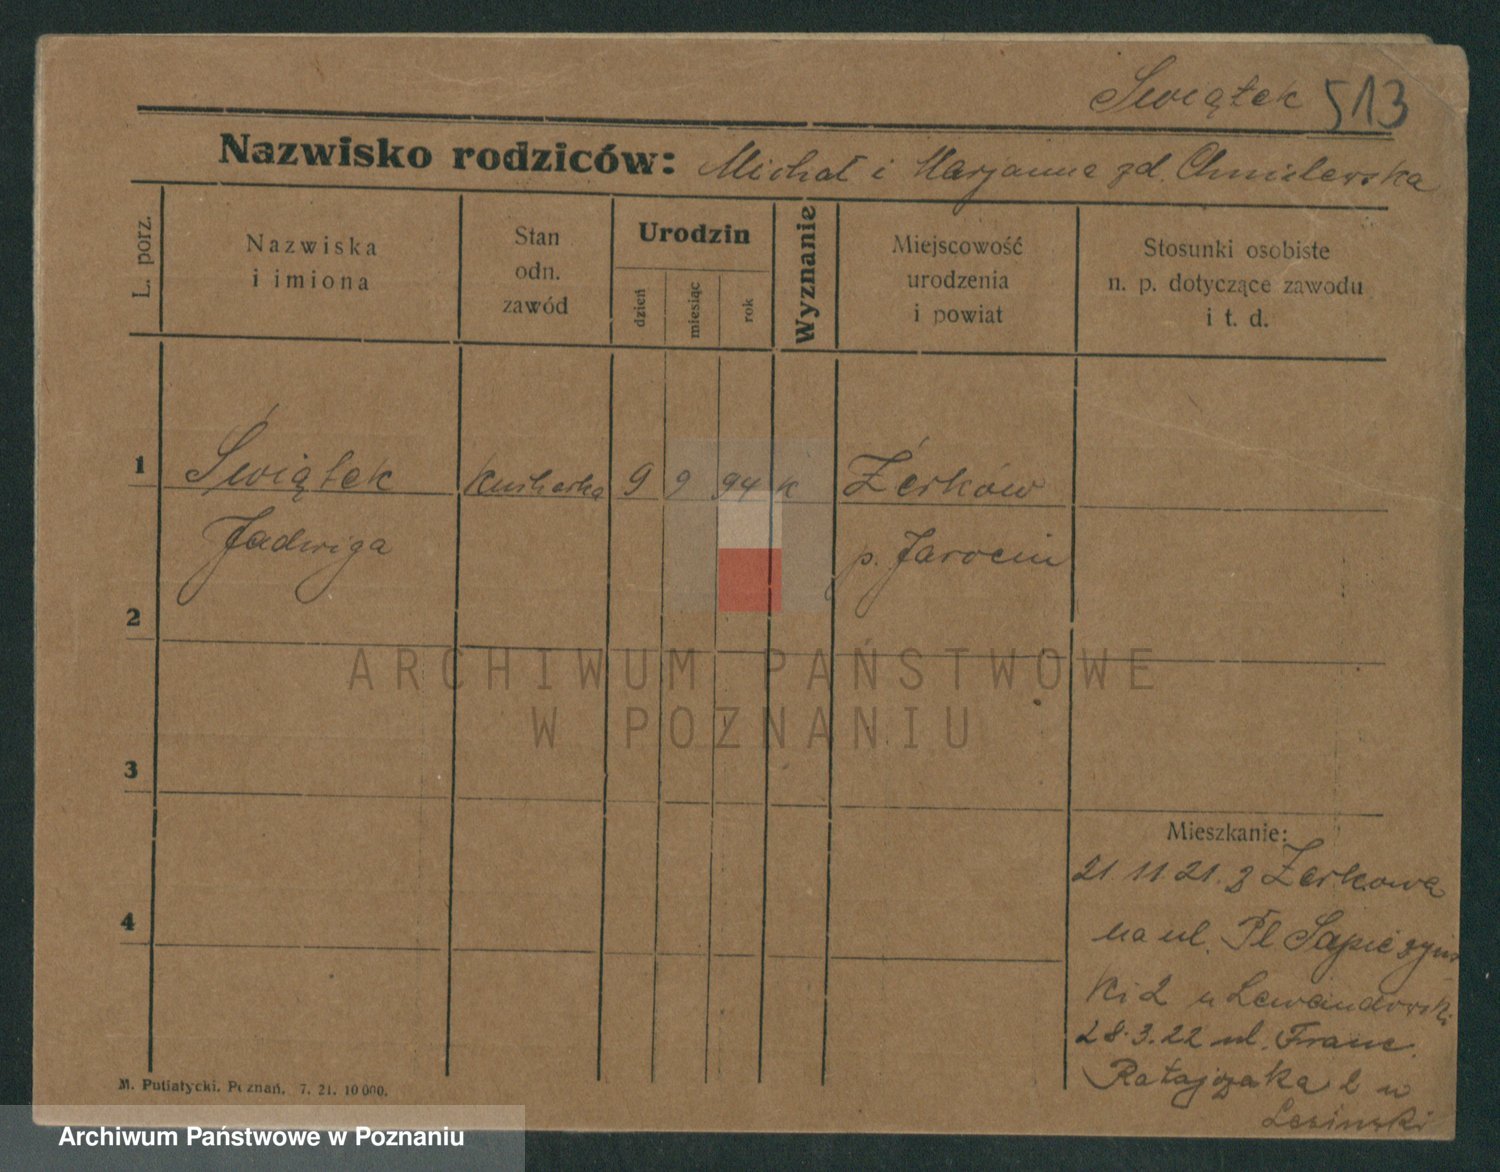 Świątek 513
Nazwisko rodziców: Michał i Marjanna zd. Chmielewska
L. porz.
Nazwiska
i imiona
Stan
odn.
zawód
Urodzin
dzień
miesiąc
rok
Wyznanie
Miejscowość
urodzenia
i powiat
Stosunki osobiste
n. p. dotyczące zawodu
i t. d.
1 Świątek Kucharka 9 9 94 k Żerków
Jadwiga p. Jarocin
2
ARCHIWUM PAŃSTWOWE
W POZNANIU
3
Mieszkanie:
21 11 21. z Żerkowa
4
na ul. Pl Sapieżyńs
ki 2 u Lewandowski
28.3.22 ul. Franc.
Ratajczaka 2 u
M. Putiatycki. Poznań. 7. 21. 10000.
Archiwum Państwowe w Poznaniu